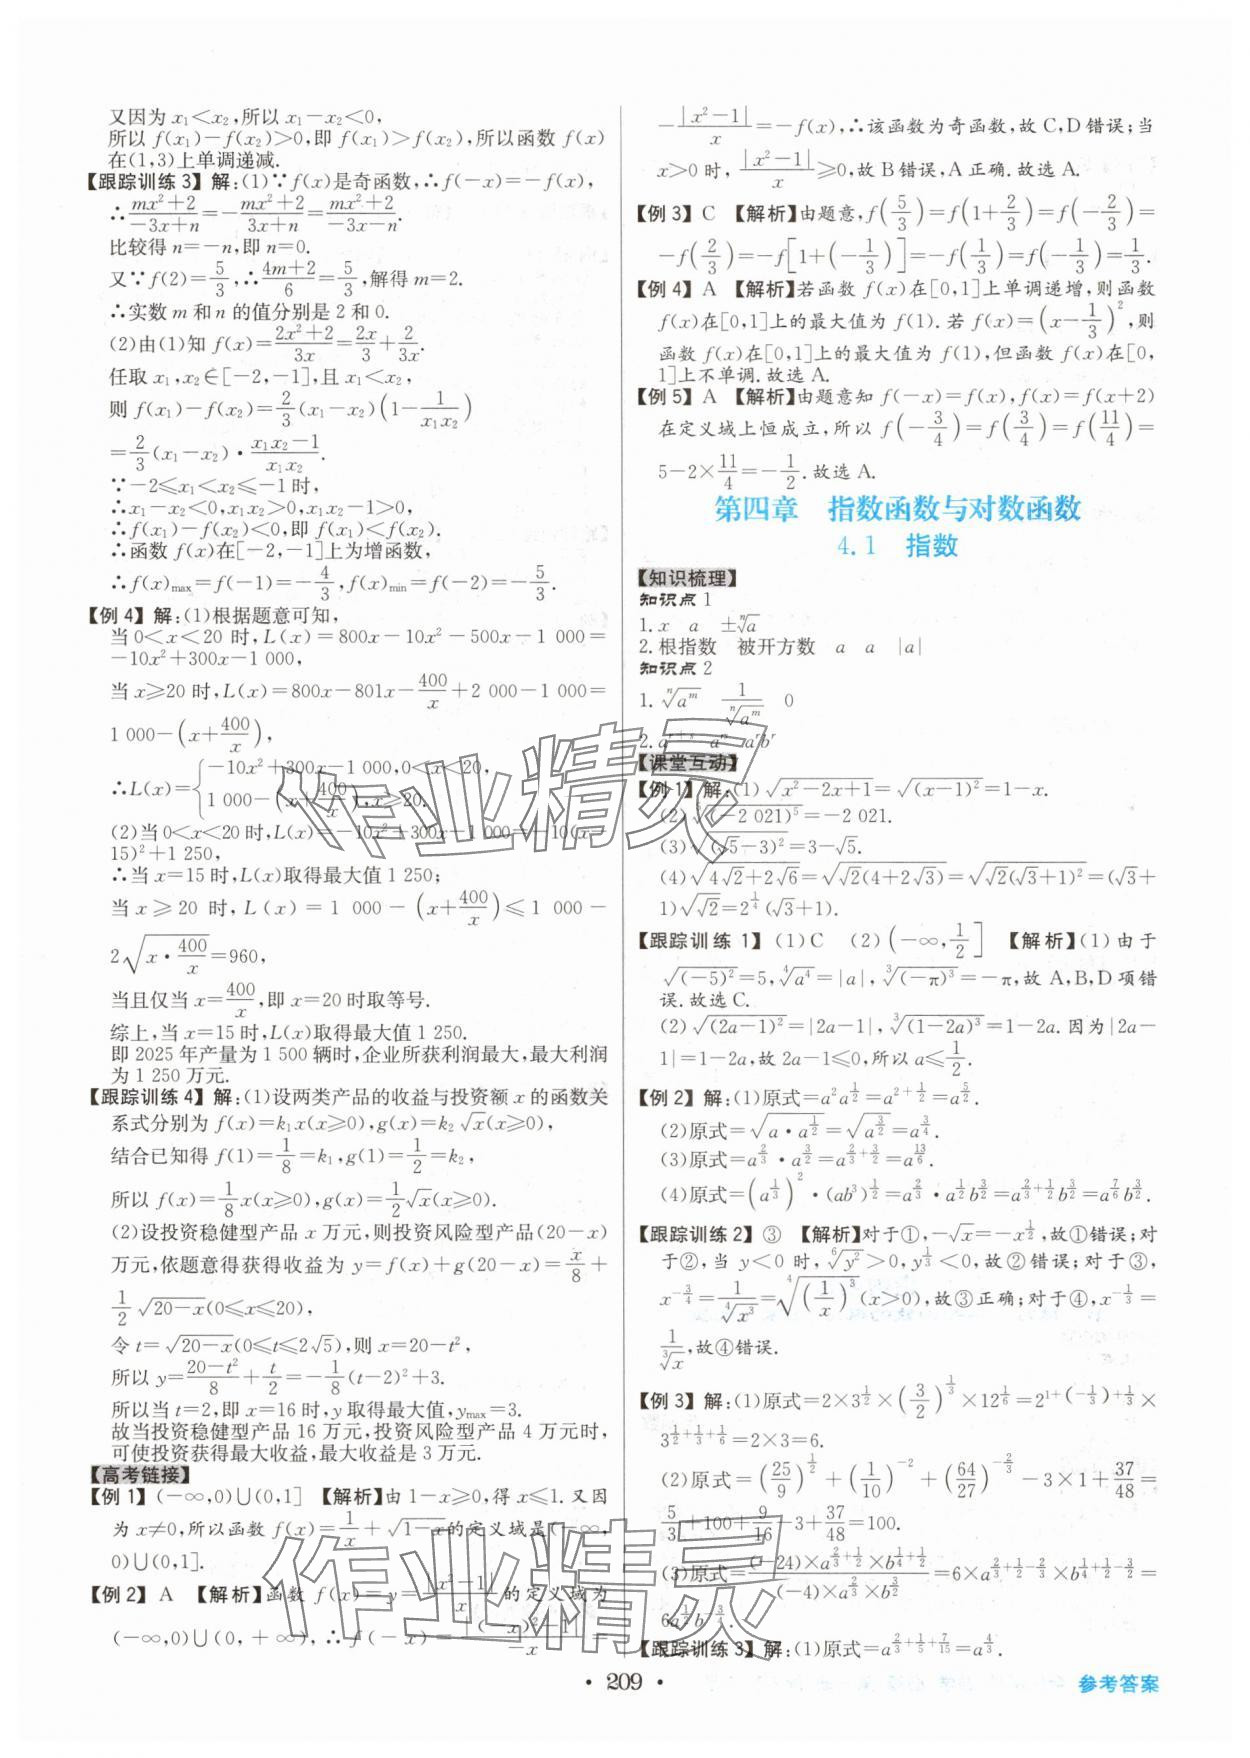 又因为 x₁<x₂,所以 x₁-x₂<0,
所以 f(x₁)-f(x₂)>0,即 f(x₁)>f(x₂),所以函数 f(x)
在(1,3)上单调递减.
【跟踪训练3】解:(1)∵f(x)是奇函数,∴f(-x)=-f(x),
∴(mx²+2)/(-3x+n)=-(mx²+2)/(3x+n)=(mx²+2)/(-3x-n).
比较得 n=-n,即 n=0.
又∵f(2)=5/3,∴(4m+2)/6=5/3,解得 m=2.
∴实数 m 和 n 的值分别是 2 和 0.
(2)由(1)知 f(x)=(2x²+2)/(3x)=2x/3+2/(3x).
任取 x₁,x₂∈[-2,-1],且 x₁<x₂,
则 f(x₁)-f(x₂)=2/3(x₁-x₂)(1-1/(x₁x₂))
=2/3(x₁-x₂)·(x₁x₂-1)/(x₁x₂).
∵-2≤x₁<x₂≤-1时,
∴x₁-x₂<0,x₁x₂>0,x₁x₂-1>0,
∴f(x₁)-f(x₂)<0,即 f(x₁)<f(x₂).
∴函数 f(x)在[-2,-1]上为增函数,
∴f(x)max=f(-1)=-4/3,f(x)min=f(-2)=-5/3.
【例4】解:(1)根据题意可知,
当 0<x<20 时,L(x)=800x-10x²-500x-1 000=
-10x²+300x-1 000,
当 x≥20 时,L(x)=800x-801x-400/x+2 000-1 000=
1 000-(x+400/x),
∴L(x)={-10x²+300x-1 000,0<x<20,
1 000-(x+400/x),x≥20.
(2)当 0<x<20 时,L(x)=-10x²+300x-1 000=-10(x-
15)²+1 250,
∴当 x=15 时,L(x)取得最大值 1 250;
当 x≥20 时,L(x)=1 000-(x+400/x)≤1 000-
2√(x·400/x)=960,
当且仅当 x=400/x,即 x=20 时取等号.
综上,当 x=15 时,L(x)取得最大值 1 250.
即 2025 年产量为 1 500 辆时,企业所获利润最大,最大利润
为 1 250 万元.
【跟踪训练4】解:(1)设两类产品的收益与投资额 x 的函数关
系式分别为 f(x)=k₁x(x≥0),g(x)=k₂√x(x≥0),
结合已知得 f(1)=1/8=k₁,g(1)=1/2=k₂,
所以 f(x)=1/8x(x≥0),g(x)=1/2√x(x≥0).
(2)设投资稳健型产品 x 万元,则投资风险型产品(20-x)
万元,依题意得获得收益为 y=f(x)+g(20-x)=x/8+
1/2√(20-x)(0≤x≤20),
令 t=√(20-x)(0≤t≤2√5),则 x=20-t²,
所以 y=(20-t²)/8+t/2=-1/8(t-2)²+3.
所以当 t=2,即 x=16 时,y 取得最大值,ymax=3.
故当投资稳健型产品 16 万元,投资风险型产品 4 万元时,
可使投资获得最大收益,最大收益是 3 万元.
【高考链接】
【例1】(-∞,0)∪(0,1] 【解析】由 1-x≥0,得 x≤1.又因
为 x≠0,所以函数 f(x)=1/x+√(1-x)的定义域是(-∞,
0)∪(0,1].
【例2】A 【解析】函数 f(x)=y=|x²-1|/x 的定义域为
(-∞,0)∪(0,+∞),∴f(-x)=|(-x)²-1|/(-x)=
-|x²-1|/x=-f(x),∴该函数为奇函数,故 C,D 错误;当
x>0 时,|x²-1|/x≥0,故 B 错误,A 正确.故选 A.
【例3】C 【解析】由题意,f(5/3)=f(1+2/3)=f(-2/3)=
-f(2/3)=-f[1+(-1/3)]=-f(1/3)=f(-1/3)=1/3.
【例4】A 【解析】若函数 f(x)在[0,1]上单调递增,则函数
f(x)在[0,1]上的最大值为 f(1).若 f(x)=(x-1/3)²,则
函数 f(x)在[0,1]上的最大值为 f(1),但函数 f(x)在[0,
1]上不单调.故选 A.
【例5】A 【解析】由题意知 f(-x)=f(x),f(x)=f(x+2)
在定义域上恒成立,所以 f(-3/4)=f(3/4)=f(11/4)=
5-2×11/4=-1/2.故选 A.
第四章 指数函数与对数函数
4.1 指数
【知识梳理】
知识点1
1.x a ±ⁿ√a
2.根指数 被开方数 a a |a|
知识点2
1.ⁿ√(aᵐ) 1/ⁿ√(aᵐ) 0
2.aʳ⁺ˢ aʳˢ aʳbʳ
【课堂互动】
【例1】解:(1)√(x²-2x+1)=√((x-1)²)=1-x.
(2)⁵√((-2 021)⁵)=-2 021.
(3)√((√5-3)²)=3-√5.
(4)√(4√2+2√6)=√(√2(4+2√3))=√(√2(√3+1)²)=(√3+
1)√(√2)=2^(1/4)(√3+1).
【跟踪训练1】(1)C (2)(-∞,1/2] 【解析】(1)由于
√((-5)²)=5,⁴√(a⁴)=|a|,³√((-π)³)=-π,故 A,B,D 项错
误.故选 C.
(2)√((2a-1)²)=|2a-1|,³√((1-2a)³)=1-2a.因为|2a-
1|=1-2a,故 2a-1≤0,所以 a≤1/2.
【例2】解:(1)原式=a²a^(1/2)=a^(2+1/2)=a^(5/2).
(2)原式=√(a·a^(1/2))=√(a^(3/2))=a^(3/4).
(3)原式=a^(2/3)·a^(3/2)=a^(2/3+3/2)=a^(13/6).
(4)原式=(a^(1/3))²·(ab³)^(1/2)=a^(2/3)·a^(1/2)b^(3/2)=a^(2/3+1/2)b^(3/2)=a^(7/6)b^(3/2).
【跟踪训练2】③ 【解析】对于①,-√x=-x^(1/2),故①错误;对
于②,当 y<0 时,⁶√(y²)>0,y^(1/3)<0,故②错误;对于③,
x^(-3/4)=1/⁴√(x³)=⁴√((1/x)³)(x>0),故③正确;对于④,x^(-1/3)=
1/³√x,故④错误.
【例3】解:(1)原式=2×3^(1/2)×(3/2)^(1/3)×12^(1/6)=2^(1+(-1/3)+1/3)×
3^(1/2+1/3+1/6)=2×3=6.
(2)原式=(25/9)^(1/2)+(1/10)^(-2)+(64/27)^(-2/3)-3×1+37/48=
5/3+100+9/16-3+37/48=100.
(3)原式=((-24)×a^(2/3+1/2)×b^(1/4+1/2))/((-4)×a^(2/3)×b^(3/2))=6×a^(2/3+1/2-2/3)×b^(1/4+1/2-3/2)=
6a^(1/2)b^(-3/4).
【跟踪训练3】解:(1)原式=a^(2/3+1/5+7/15)=a^(4/3).
• 209 •
参考答案
作业精灵
作业精灵